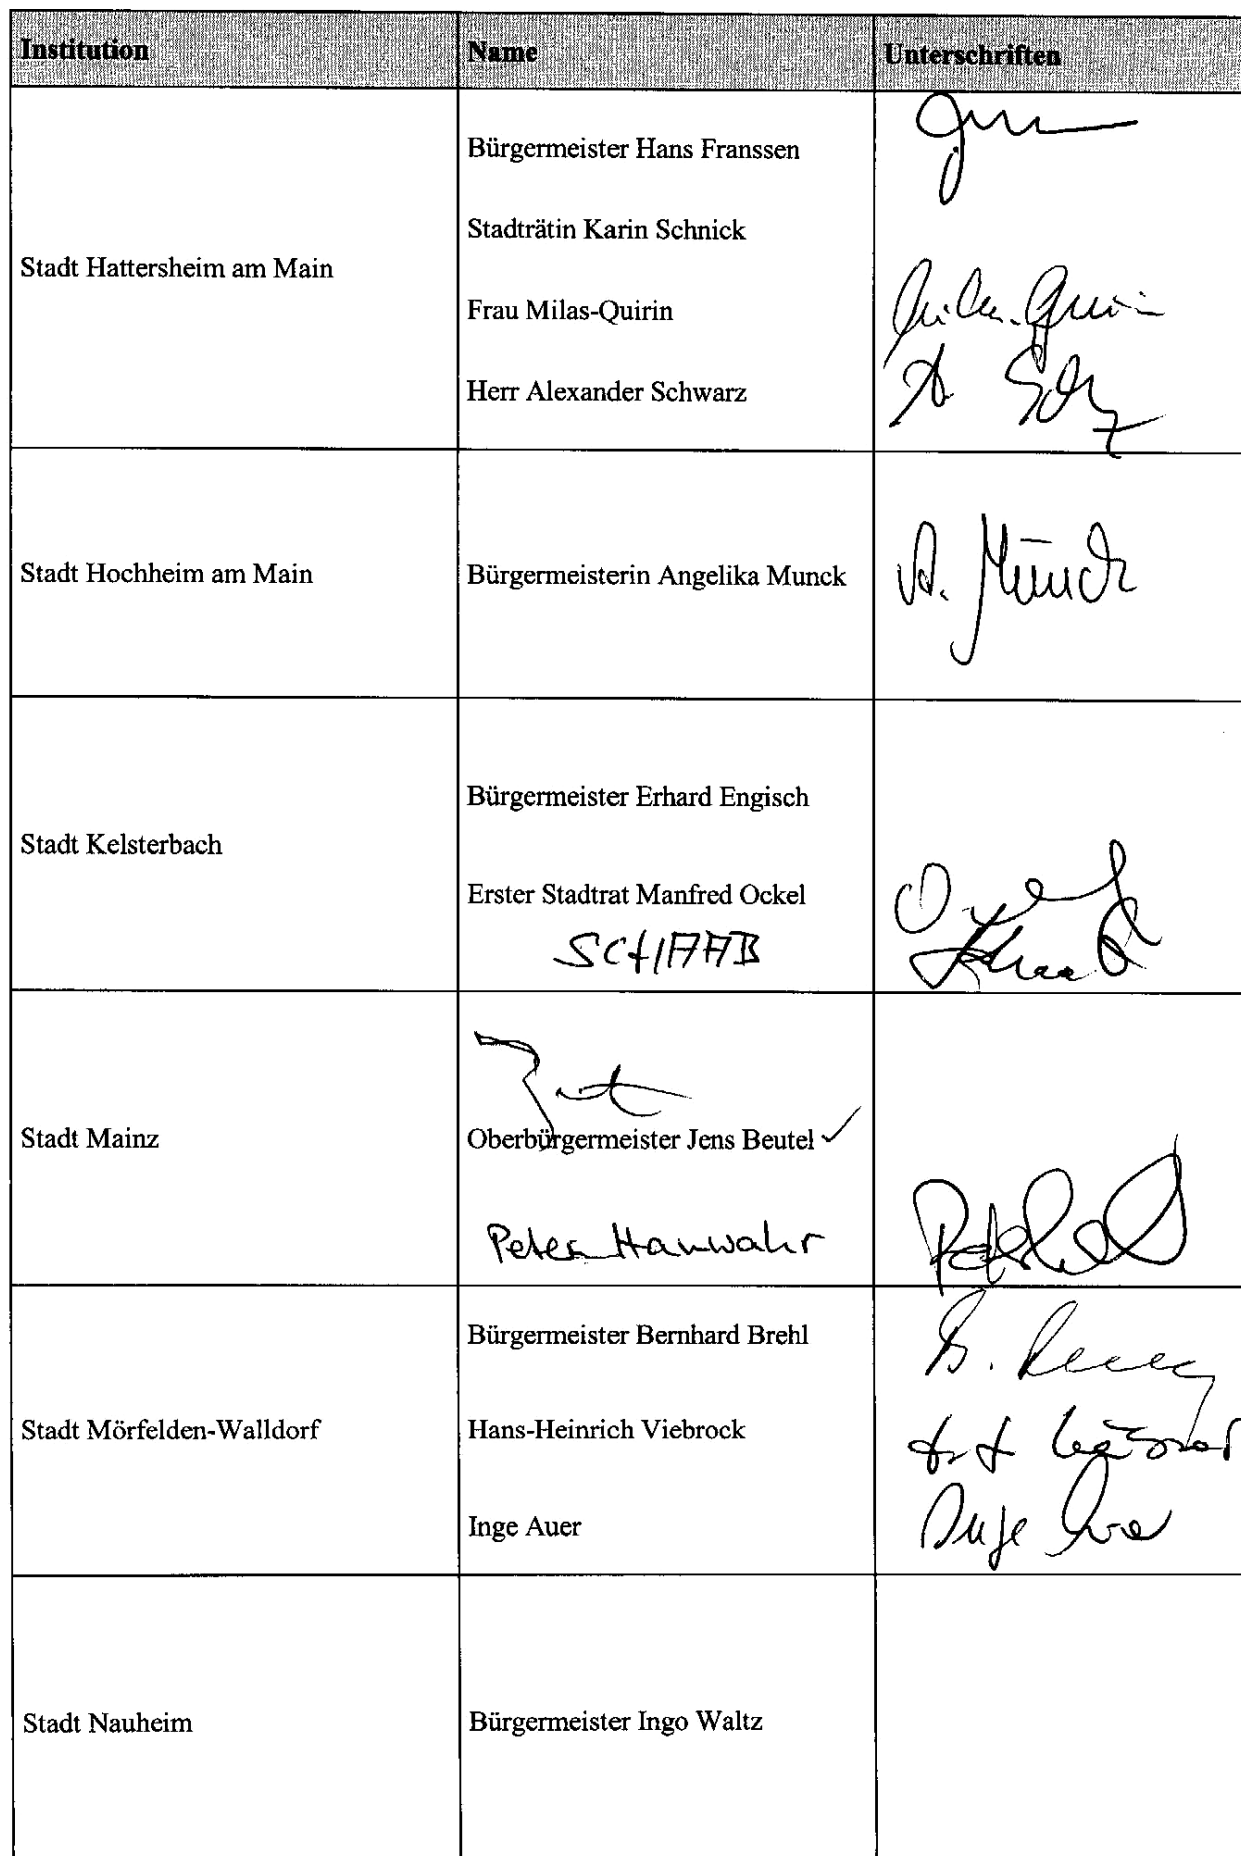 Institution Name Unterschriften
Stadt Hattersheim am Main
Bürgermeister Hans Franssen
Stadträtin Karin Schnick
Frau Milas-Quirin
Herr Alexander Schwarz
Stadt Hochheim am Main
Bürgermeisterin Angelika Munck
A. Munck
Stadt Kelsterbach
Bürgermeister Erhard Engisch
Erster Stadtrat Manfred Ockel
SCHAAB
Stadt Mainz
Oberbürgermeister Jens Beutel ✓
Peter Hanwahr
Stadt Mörfelden-Walldorf
Bürgermeister Bernhard Brehl
Hans-Heinrich Viebrock
Inge Auer
Inge Auer
Stadt Nauheim
Bürgermeister Ingo Waltz